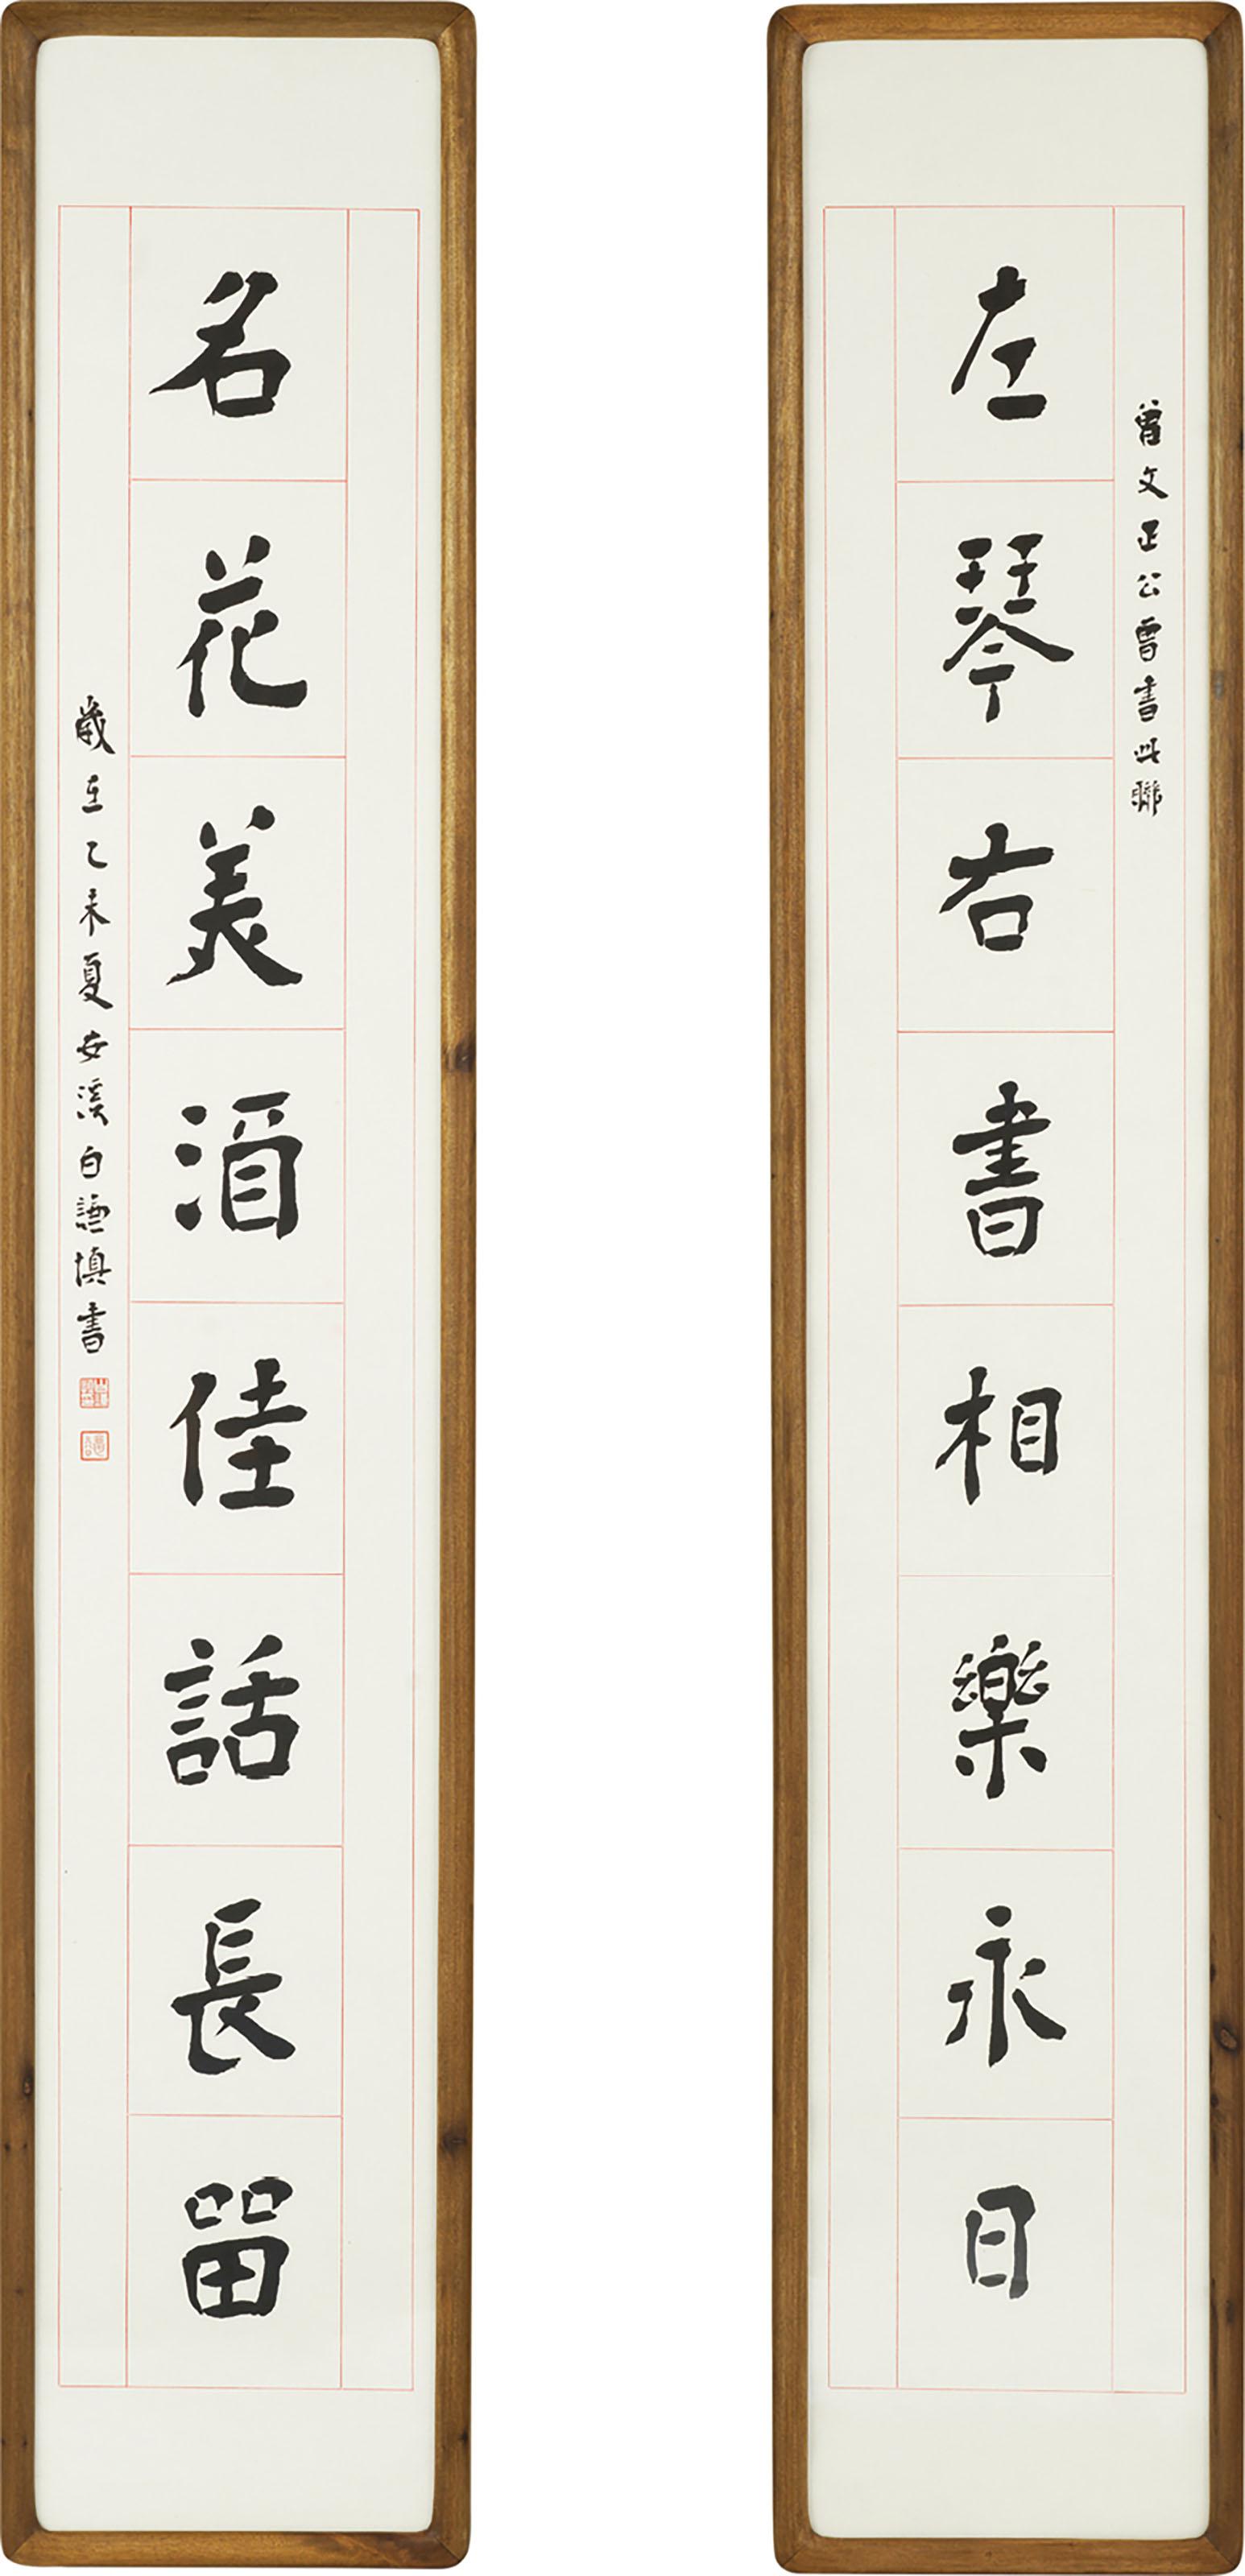 曾文正公嘗書此聯
左琴右書相樂永日
名花美酒佳話長留
歲在乙未夏安溪白謙慎書